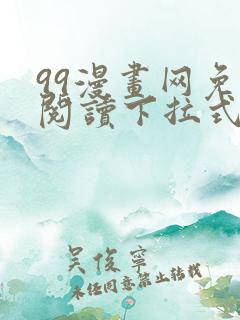 99漫畫网免
閱讀下拉式
吴俊寧
未经同意禁止转载